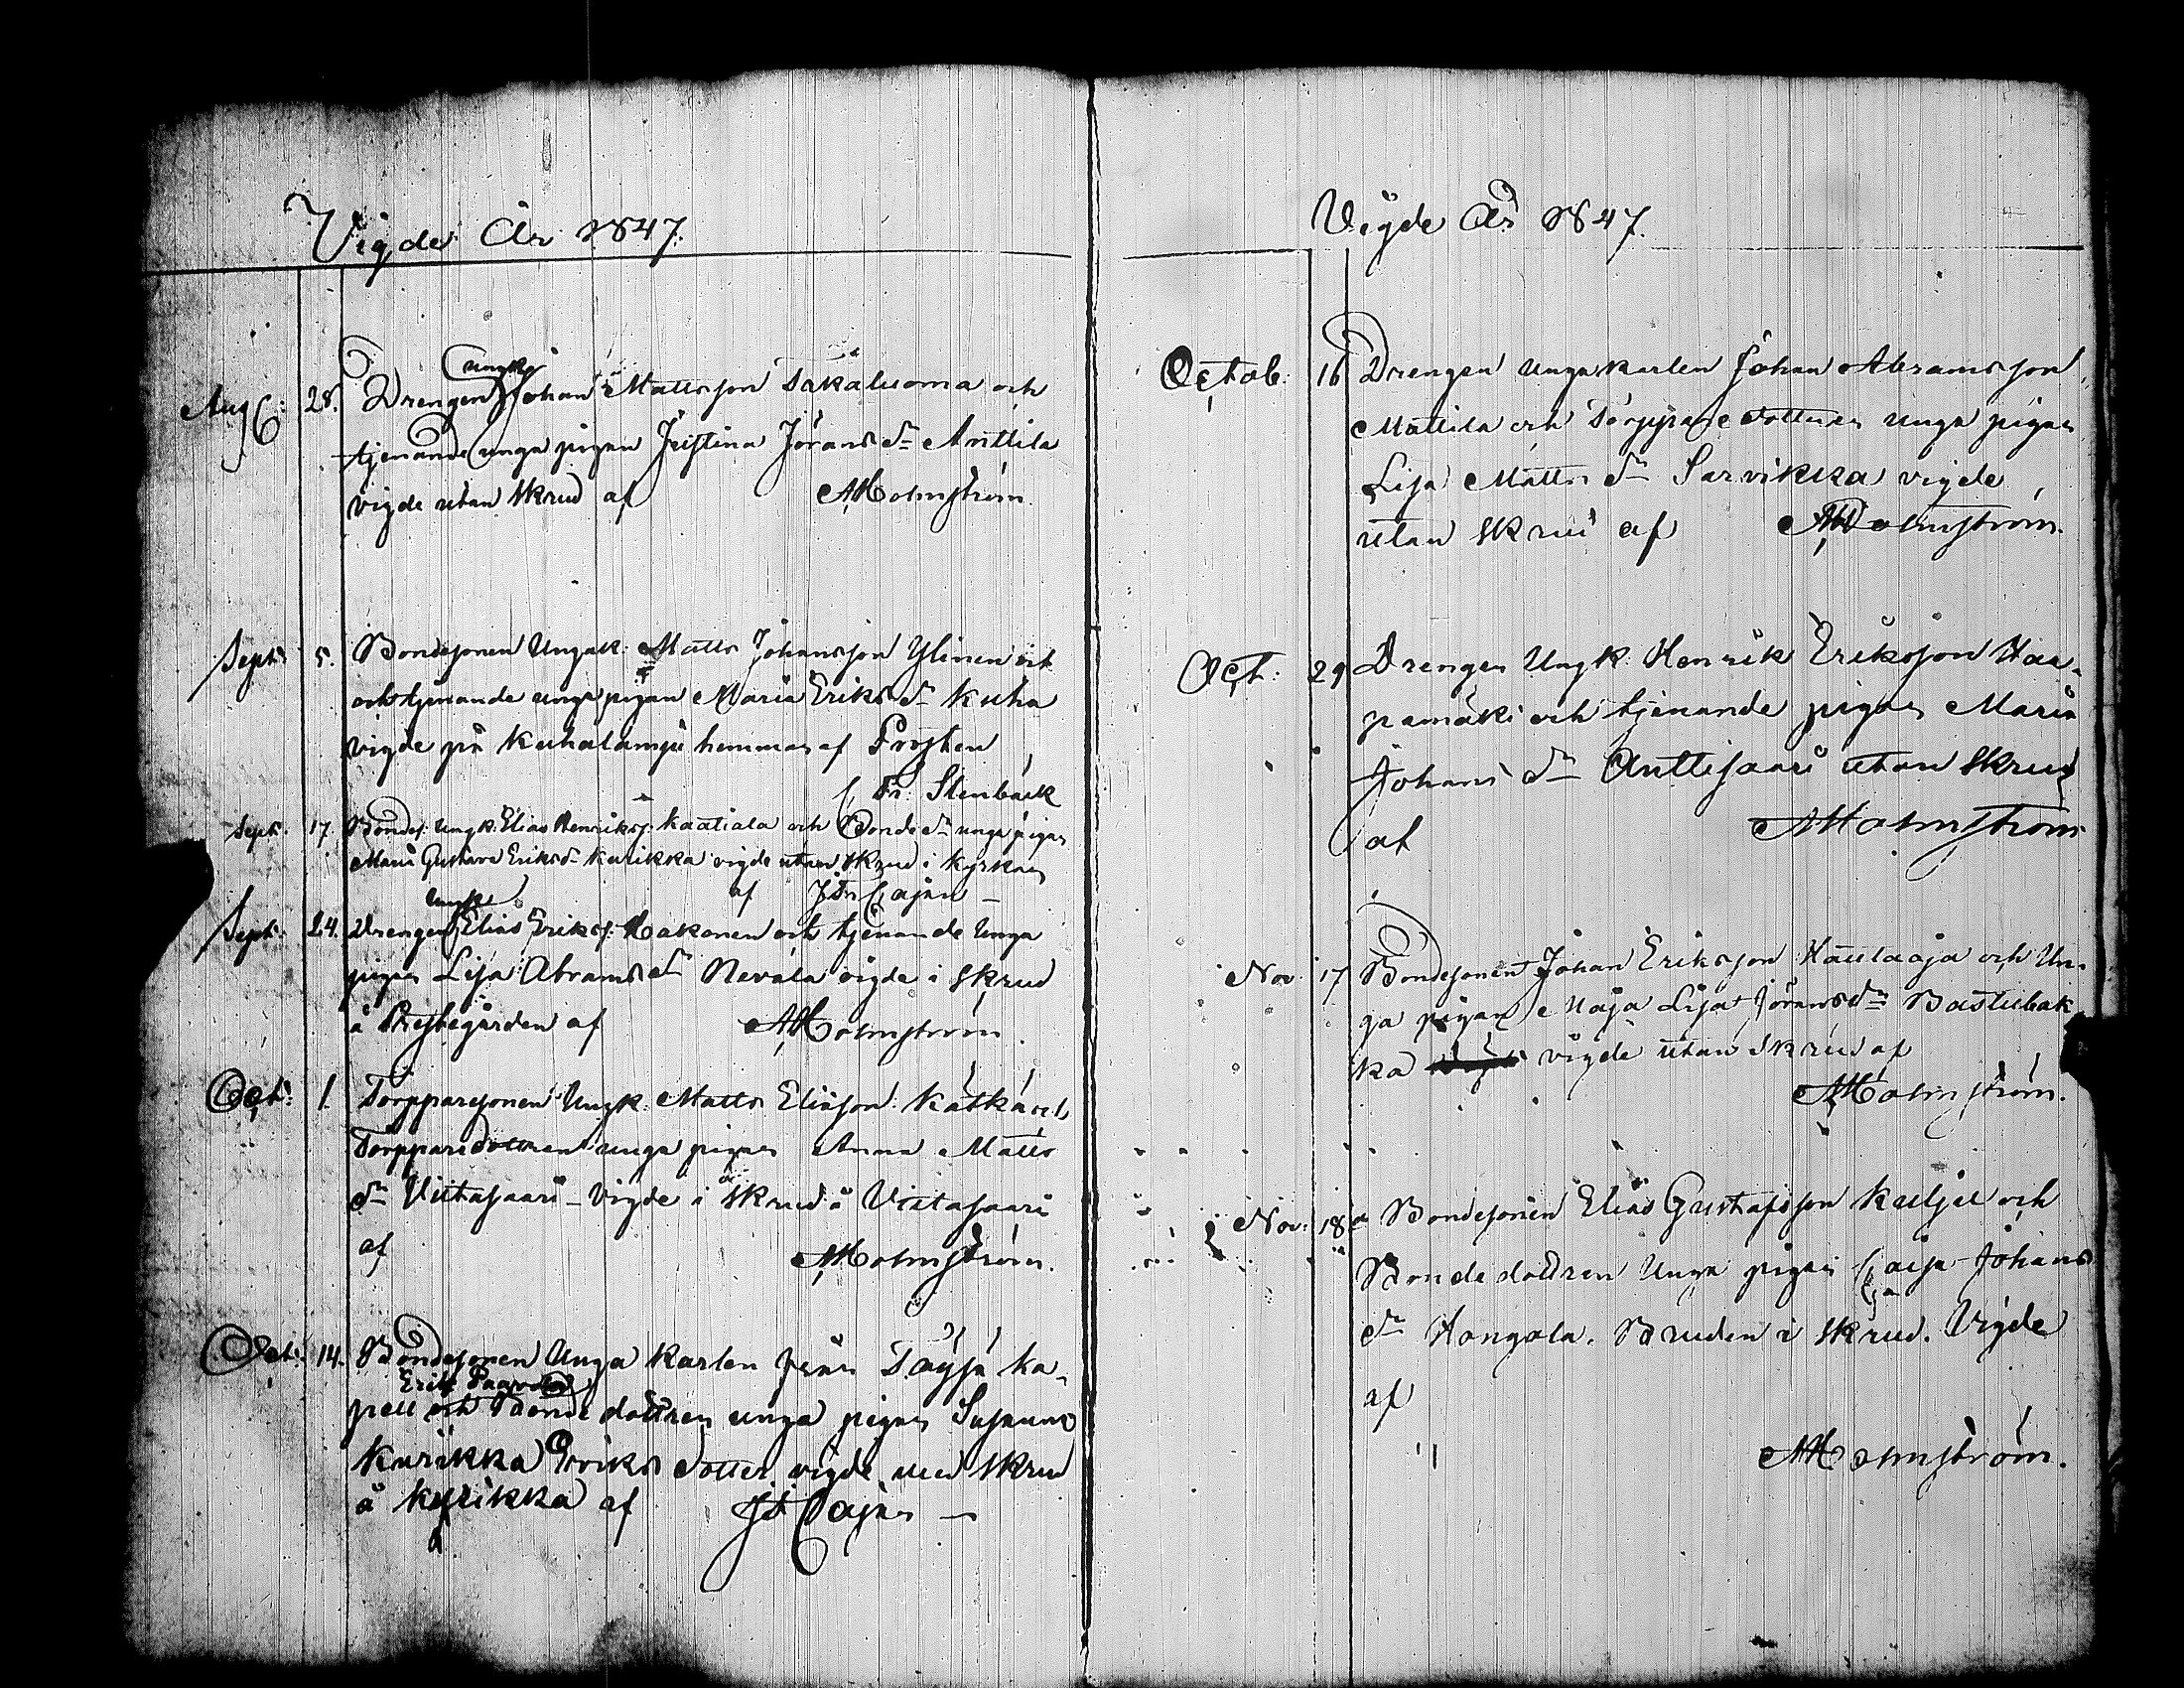 Vigde År 1847.
Aug: 28. Drengen Ungk: Johan Mattsson Sakaluoma och
tjenande unga pigan Justina Jörans dr Anttila
vigde utan skrud af AHolmström.
Sept: 5. Bondesonen Ungk: Matts Johansson Ylinen och
och tjenande unga pigan Maria Eriks dr Kuha
vigde på hemman af Prosten
C. Fr. Stenbäck
Sept: 17. Bondes: Ungk: Elias Henrikss: Kaatiala och Bonde dr unga pigan
Maria Gustava Eriksdr Kurikka vigde utan skrud i kyrkan
af Cajan
Sept: 24. Drengen Ungk: Elias Eriks: Hakonen och tjenande Unga
pigan Lisa Abrams dr Nevala vigde i skrud
å Prestegården af AHolmström.
Oct: 1. Torpparesonen Ungk: Matts Eliasson Kaskä och
Torpparedottren unga pigan Anna Matts
dr Viitasaari vigde i skrud å Viitasaari
af AHolmström.
Oct: 14. Bondesonen Unga Karlen från Töysä ka-
pell Erik och Bonde dottren unga pigan Susanna
Kurikka Eriks dotter vigde med skrud
å Kurikka af Cajan
Vigde År 1847.
Octob: 16 Drengen unga karlen Johan Abramsson
Mattila och Torppare dottren unga pigan
Lisa Matts dr Sarvikka vigde
utan skrud af AHolmström.
Oct: 29 Drengen Ungk: Henrik Eriksson Haa-
pamäki och tjenande pigan Maria
Johans dr Anttisaari utan skrud
af AHolmström
Nov: 17 Bondesonen Johan Eriksson Hautaoja och Un-
ga pigan Maja Lisa Jörans dr Bastubak
ka vigde utan skrud af
AHolmström.
Nov: 18 Bondesonen Elias Gustafsson Kulju och
Bonde dottren Unga pigan Caisa Johans
dr Hangola. Bruden i skrud. Vigde
af
AHolmström.